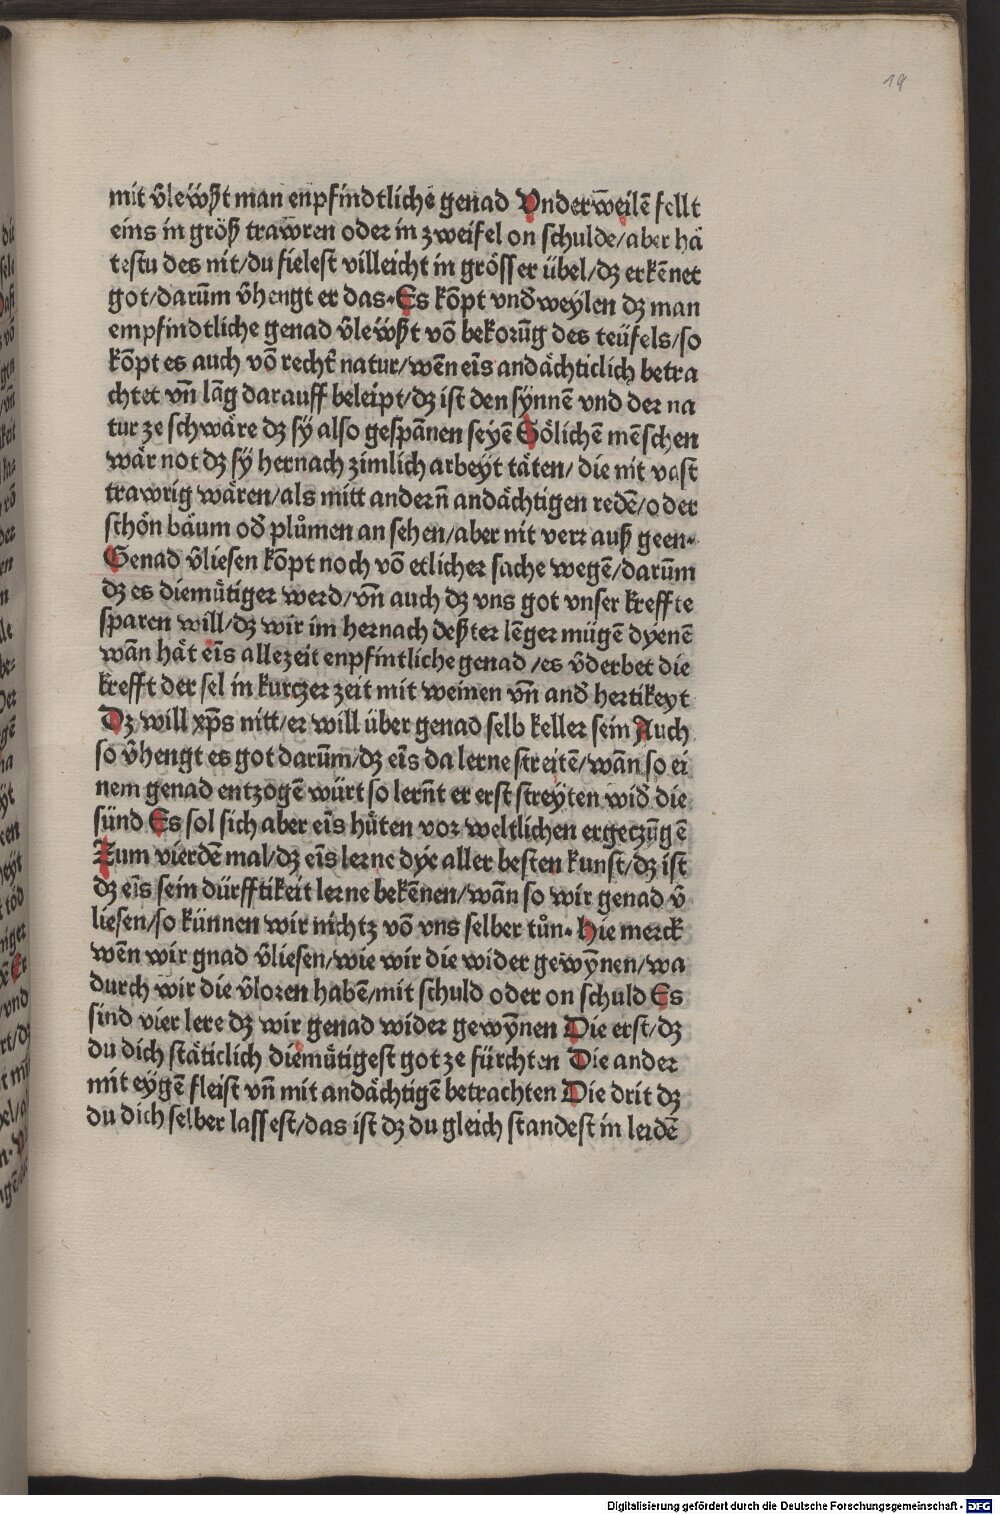 19
mit v̄lewßt man enpfindtliche genad Vnderweilē fellt
eins in größ trawren oder in zweifel on schulde/aber hā
testu des nit/du fielest villeicht in grösser übel/dz erkēnet
got/darūm v̄hengt er das·Es kōpt vndweylen dz man
empfindtliche genad v̄lewßt vō bekorūg des teüfels/so
kōpt es auch vō recht̄ natur/wēn eīs andächticlich betra
chtet vn̄ lāg darauff beleipt/dz ist den synnē vnd der na
tur ze schwäre dz sy also gespānen seyē Sölichē mēschen
wär not dz sy hernach zimlich arbeyt täten/ die nit vast
trawrig wären/als mitt andern̄ andächtigen redē/oder
schön bäum od̄ plůmen an sehen/aber nit verr auß geen·
Genad v̄liesen kōpt noch vō etlicher sache wegē/darūm
dz es diemütiger werd/vn̄ auch dz vns got vnser kreffte
sparen will/dz wir im hernach deßter lēger mügē dyenē
wān hät eīs allezeit enpfintliche genad /es v̄derbet die
krefft der sel in kurczer zeit mit weinen vn̄ and̄ hertikeyt
Dz will xp̄s nitt/er will über genad selb keller sein Auch
so v̄hengt es got darūm/dz eīs da lerne streitē/wān so ei
nem genad entzogē würt so lern̄t er erst streyten wid̄ die
sünd Es sol sich aber eīs hüten vor weltlichen ergeczūgē
Zum vierdē mal/dz eīs lerne dye aller besten kunst/dz ist
dz eīs sein dürfftikeit lerne bekēnen/wān so wir genad v̄
liesen/so künnen wir nichtz vō vns selber tůn· Hie merck
wēn wir gnad v̄liesen/wie wir die wider gewȳnen/wa
durch wir die v̄loren habē/mit schuld oder on schuld Es
sind vier lere dz wir genad wider gewȳnen Die erst/dz
du dich stäticlich diemütigest got ze fürchten Die ander
mit eygē fleist vn̄ mit andächtigē betrachten Die drit dz
du dich selber lassest/das ist dz du gleich standest in leidē
Digitalisierung gefördert durch die Deutsche Forschungsgemeinschaft - DFG